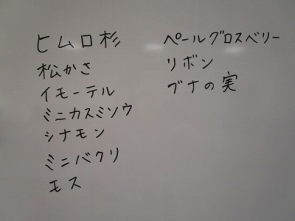 ヒムロ杉
松かさ
イモーテル
ミニカスミソウ
シナモン
ミニバクリ
モス
ペールグロスベリー
リボン
ブナの実